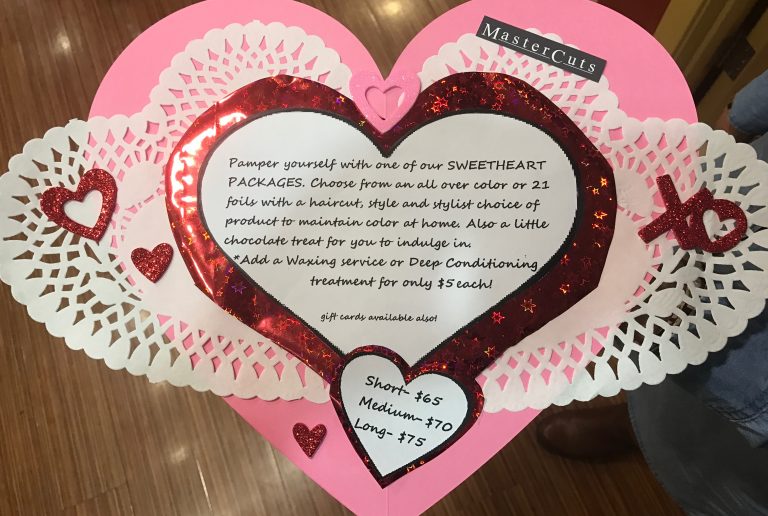 MasterCuts
Pamper yourself with one of our SWEETHEART
PACKAGES. Choose from an all over color or 21
foils with a haircut, style and stylist choice of
product to maintain color at home. Also a little
chocolate treat for you to indulge in.
*Add a Waxing service or Deep Conditioning
treatment for only $5 each!
gift cards available also!
Short- $65
Medium- $70
Long- $75
XO